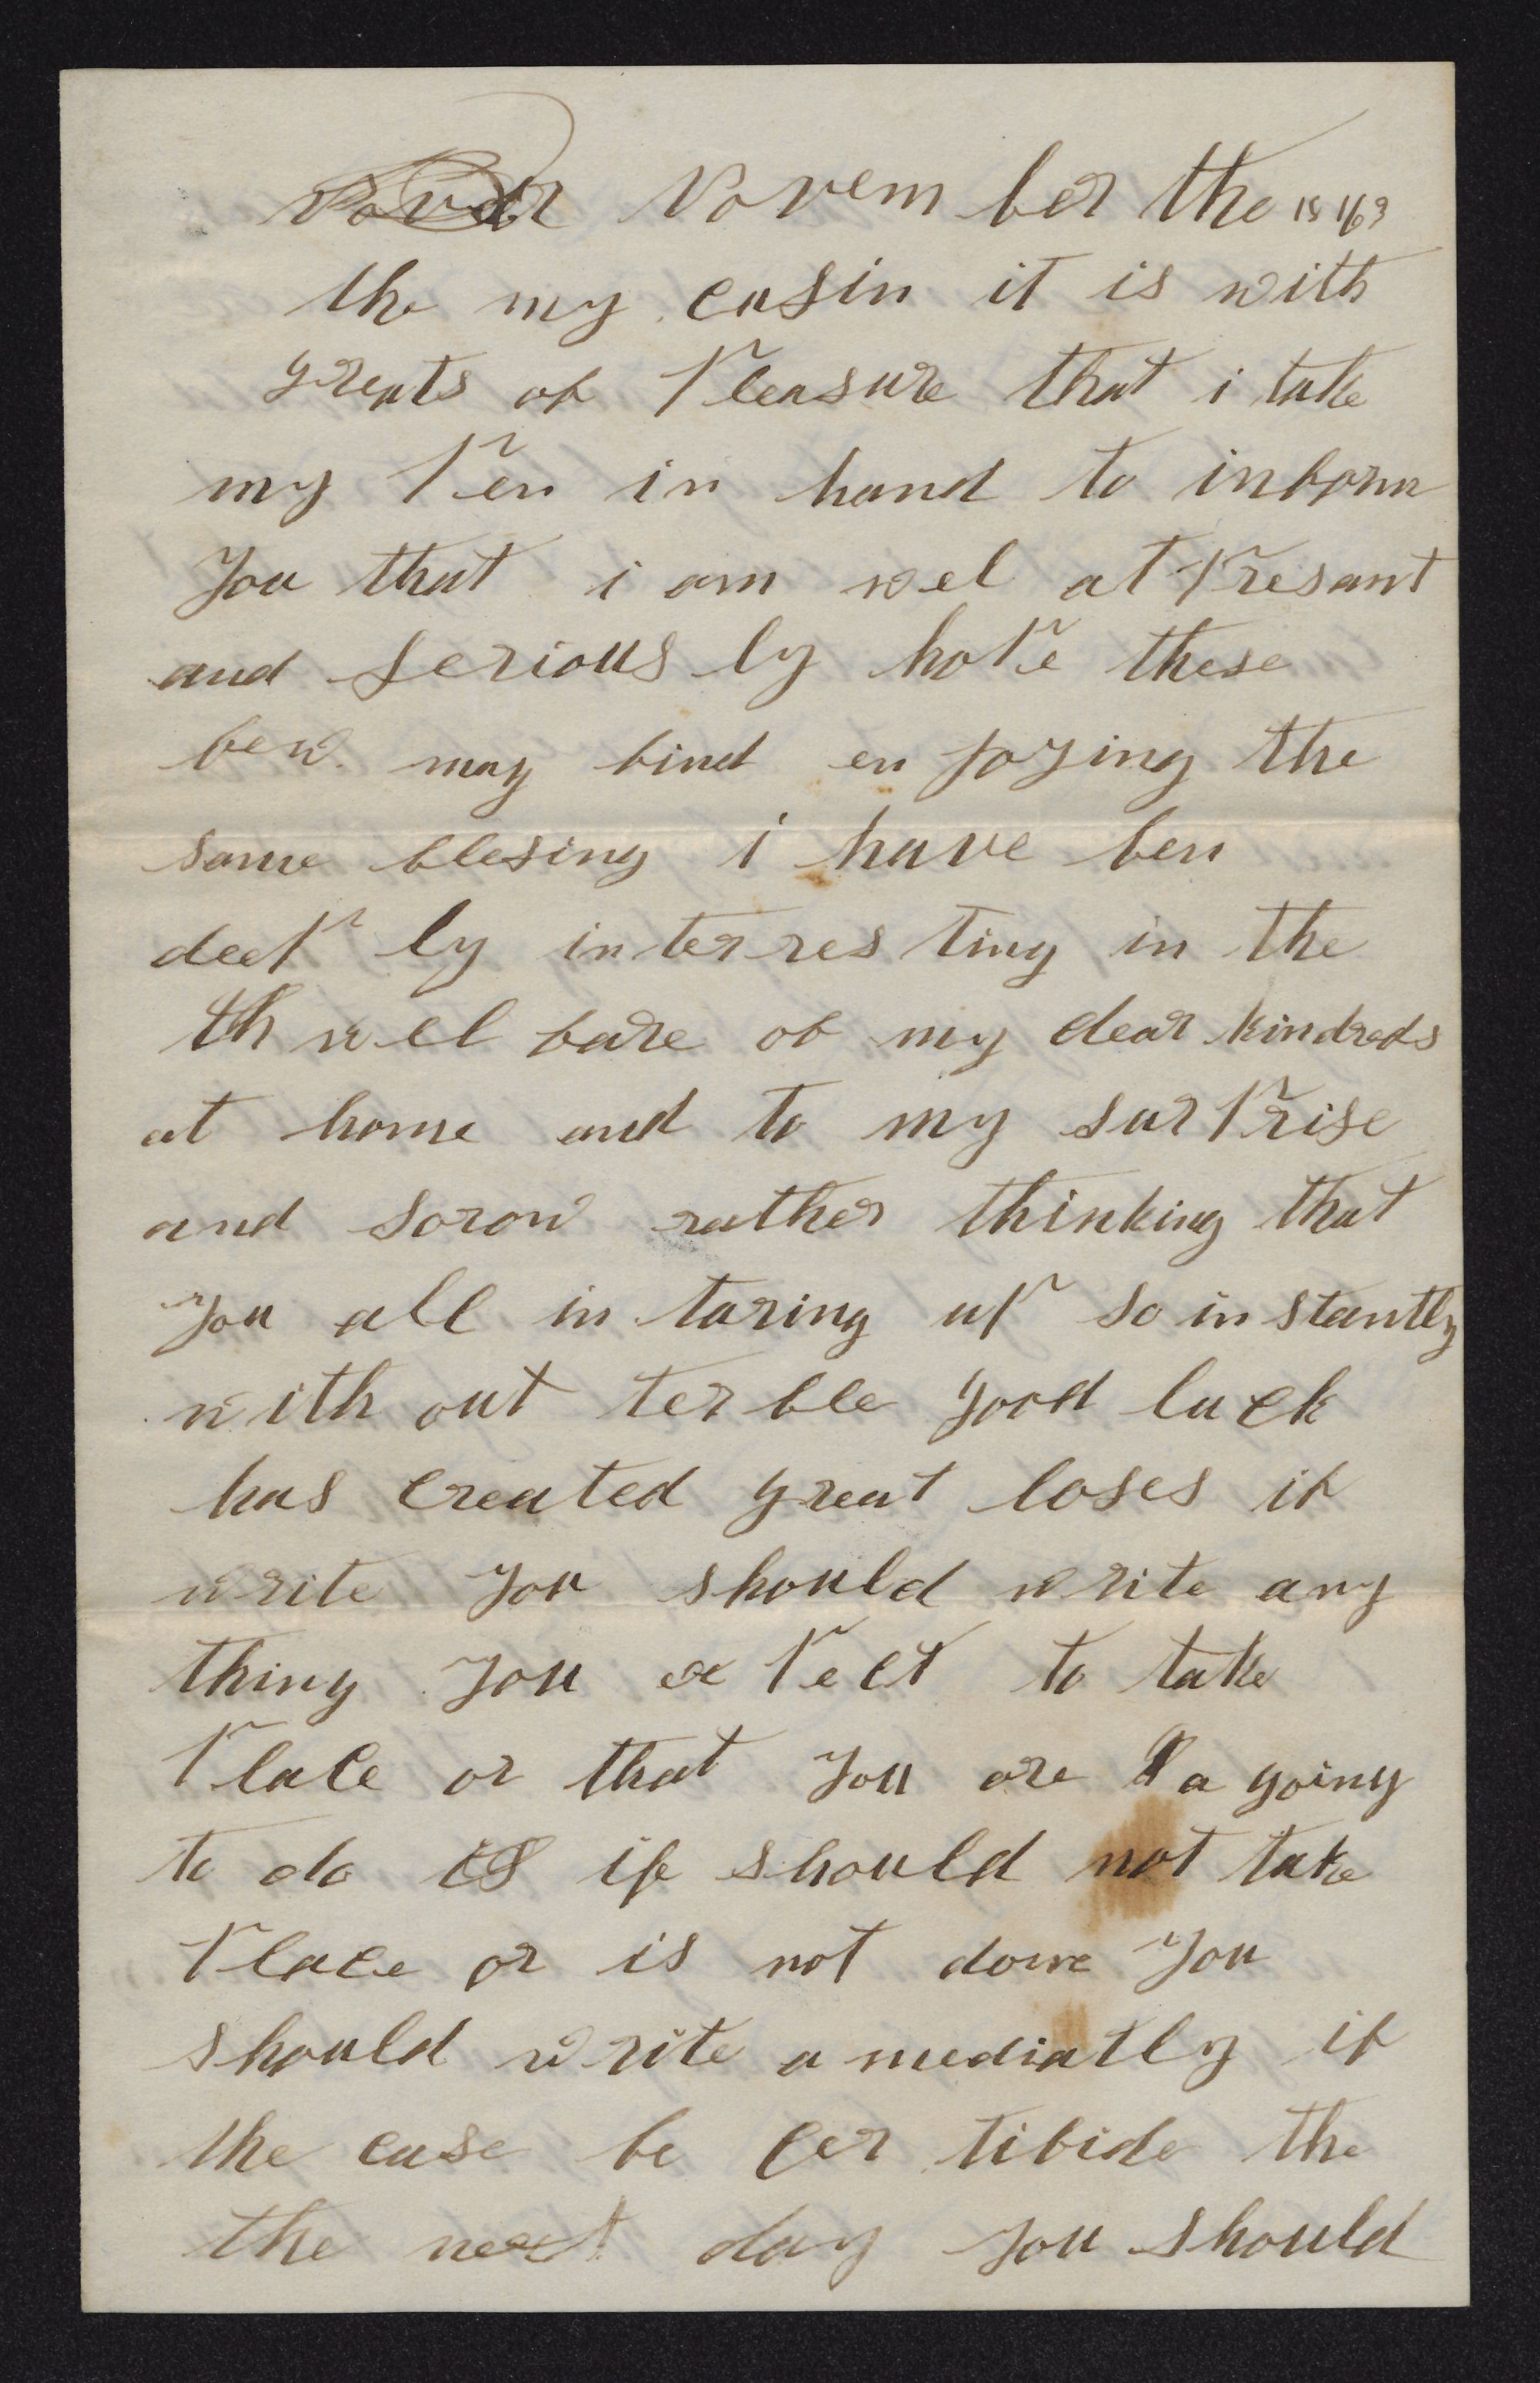 November the 18 1163
the my cusin it is with
greats of Pleasure that i take
my Pen in hand to inform
you that i am wel at Presant
and serious ly hoPe these
few may find en joying the
same blesing i have ben
deeP ly in ter res ting in the
th wel fare of my dear kindreds
at home and to my surPrise
and sorow rather thinking that
you all in taring uP so in stantly
with out ter ble good luck
has created great loses if
write you should write any
thing you ex Pect to take
Place or that you are a going
to do is if should not take
Place or is not done you
should write a mediatly if
the case be cer tifide the
the next day you should